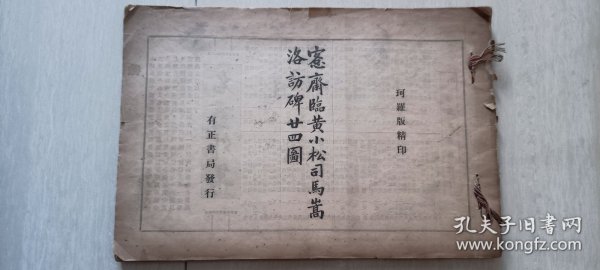 珂羅版精印
愙齋臨黃小松司馬嵩
洛訪碑廿四圖
有正書局發行
孔夫子旧书网
www.kongfz.com